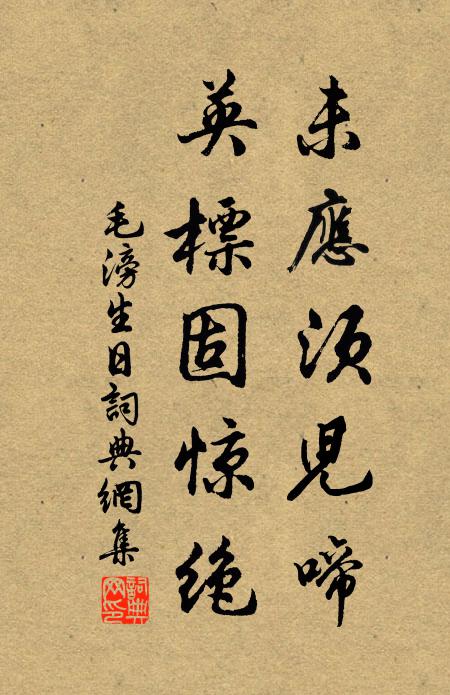 未應須兒啼
英標固惊绝
毛滂生日詞典網集
詞典网印